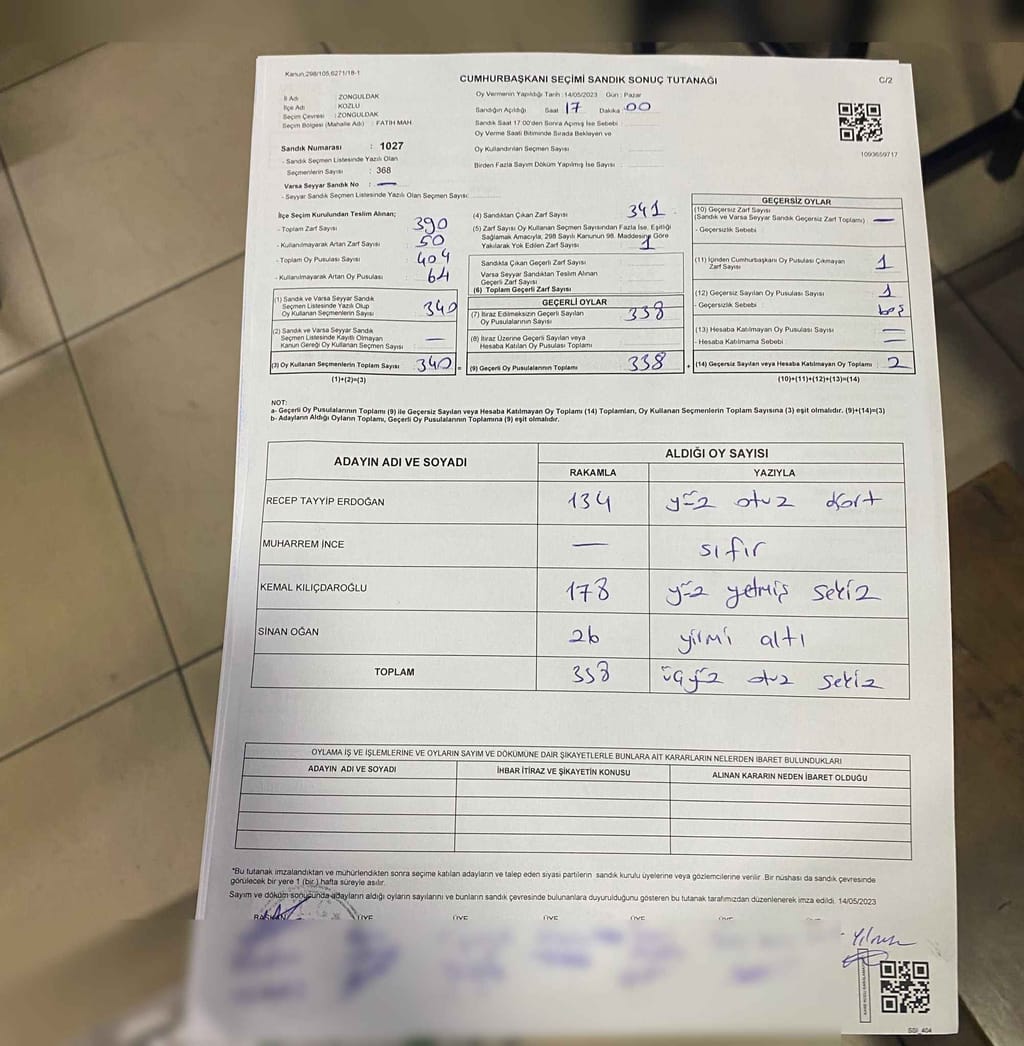 Kanun:298/105,6271/18-1
CUMHURBAŞKANI SEÇİMİ SANDIK SONUÇ TUTANAĞI
C/2
İl Adı : ZONGULDAK
İlçe Adı : KOZLU
Seçim Çevresi : ZONGULDAK
Seçim Bölgesi (Mahalle Adı) : FATİH MAH.
Oy Vermenin Yapıldığı Tarih : 14/05/2023 Gün : Pazar
Sandığın Açıldığı Saat 17 Dakika 00
Sandık Saat 17:00'den Sonra Açılmış İse Sebebi
Oy Verme Saati Bitiminde Sırada Bekleyen ve
Oy Kullandırılan Seçmen Sayısı
Birden Fazla Sayım Döküm Yapılmış İse Sayısı
1093659717
Sandık Numarası : 1027
- Sandık Seçmen Listesinde Yazılı Olan
Seçmenlerin Sayısı : 368
Varsa Seyyar Sandık No : —
- Seyyar Sandık Seçmen Listesinde Yazılı Olan Seçmen Sayısı:
İlçe Seçim Kurulundan Teslim Alınan;
- Toplam Zarf Sayısı 390
- Kullanılmayarak Artan Zarf Sayısı 50
- Toplam Oy Pusulası Sayısı 404
- Kullanılmayarak Artan Oy Pusulası 64
(1) Sandık ve Varsa Seyyar Sandık
Seçmen Listesinde Yazılı Olup
Oy Kullanan Seçmen Sayısı 340
(2) Sandık ve Varsa Seyyar Sandık
Seçmen Listesinde Kayıtlı Olmayan
Kanun Gereği Oy Kullanan Seçmen Sayısı —
(3) Oy Kullanan Seçmenlerin Toplam Sayısı 340 =
(1)+(2)=(3)
(4) Sandıktan Çıkan Zarf Sayısı 341
(5) Zarf Sayısı Oy Kullanan Seçmen Sayısından Fazla İse, Eşitliği
Sağlamak Amacıyla, 298 Sayılı Kanunun 98. Maddesine Göre
Yakılarak Yok Edilen Zarf Sayısı 1
Sandıkta Çıkan Geçerli Zarf Sayısı
Varsa Seyyar Sandıktan Teslim Alınan
Geçerli Zarf Sayısı
(6) Toplam Geçerli Zarf Sayısı
GEÇERLİ OYLAR
(7) İtiraz Edilmeksizin Geçerli Sayılan
Oy Pusulalarının Sayısı 338
(8) İtiraz Üzerine Geçerli Sayılan veya
Hesaba Katılan Oy Pusulası Toplamı
(9) Geçerli Oy Pusulalarının Toplamı 338 +
GEÇERSİZ OYLAR
(10) Geçersiz Zarf Sayısı
(Sandık ve Varsa Seyyar Sandık Geçersiz Zarf Toplamı) —
- Geçersizlik Sebebi
(11) İçinden Cumhurbaşkanı Oy Pusulası Çıkmayan
Zarf Sayısı 1
(12) Geçersiz Sayılan Oy Pusulası Sayısı 1
- Geçersizlik Sebebi boş
(13) Hesaba Katılmayan Oy Pusulası Sayısı —
- Hesaba Katılmama Sebebi —
(14) Geçersiz Sayılan veya Hesaba Katılmayan Oy Toplamı 2
(10)+(11)+(12)+(13)=(14)
NOT:
a- Geçerli Oy Pusulalarının Toplamı (9) ile Geçersiz Sayılan veya Hesaba Katılmayan Oy Toplamı (14) Toplamları, Oy Kullanan Seçmenlerin Toplam Sayısına (3) eşit olmalıdır. (9)+(14)=(3)
b- Adayların Aldığı Oyların Toplamı, Geçerli Oy Pusulalarının Toplamına (9) eşit olmalıdır.
ADAYIN ADI VE SOYADI
ALDIĞI OY SAYISI
RAKAMLA YAZIYLA
RECEP TAYYİP ERDOĞAN 134 yüz otuz dört
MUHARREM İNCE — sıfır
KEMAL KILIÇDAROĞLU 178 yüz yetmiş sekiz
SİNAN OĞAN 26 yirmi altı
TOPLAM 338 üçyüz otuz sekiz
OYLAMA İŞ VE İŞLEMLERİNE VE OYLARIN SAYIM VE DÖKÜMÜNE DAİR ŞİKAYETLERLE BUNLARA AİT KARARLARIN NELERDEN İBARET BULUNDUKLARI
ADAYIN ADI VE SOYADI İHBAR İTİRAZ VE ŞİKAYETİN KONUSU ALINAN KARARIN NEDEN İBARET OLDUĞU
*Bu tutanak imzalandıktan ve mühürlendikten sonra seçime katılan adayların ve talep eden siyasi partilerin sandık kurulu üyelerine veya gözlemcilerine verilir. Bir nüshası da sandık çevresinde
görülecek bir yere 1 (bir ) hafta süreyle asılır.
Sayım ve döküm sonucunda adayların aldığı oyların sayılarını ve bunların sandık çevresinde bulunanlara duyurulduğunu gösteren bu tutanak tarafımızdan düzenlenerek imza edildi. 14/05/2023
BAŞKAN ÜYE ÜYE ÜYE ÜYE ÜYE